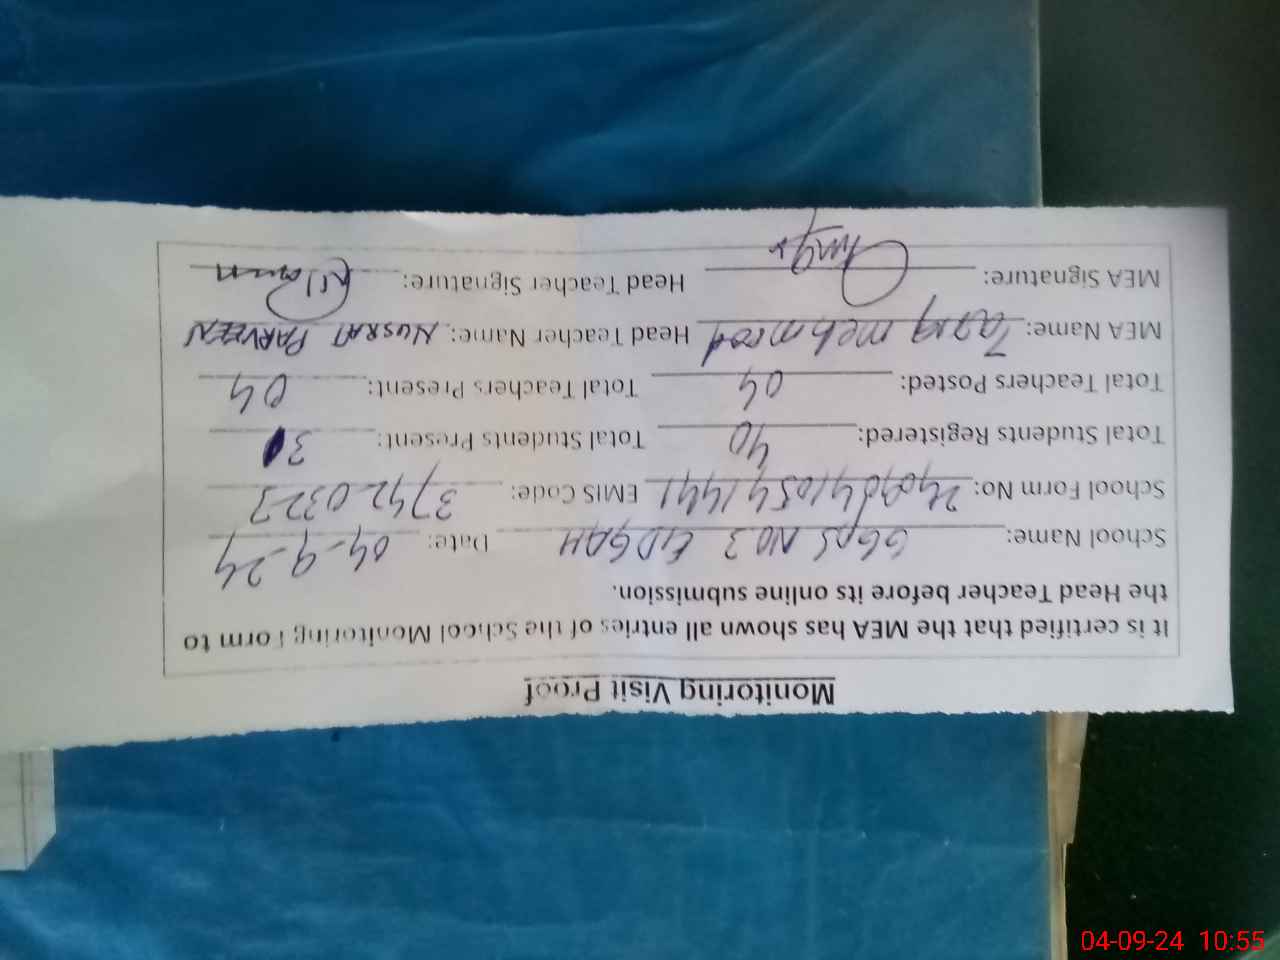 Monitoring Visit Proof
It is certified that the MEA has shown all entries of the School Monitoring Form to
the Head Teacher before its online submission.
School Name: GGPS NO 3 EIDGAH Date: 04-9-24
School Form No: EMIS Code: 37420323
Total Students Registered: 40 Total Students Present:
Total Teachers Posted: 04 Total Teachers Present: 04
MEA Name: Tariq mehmood Head Teacher Name: NUSRAT PARVEEN
MEA Signature: Head Teacher Signature:
04-09-24 10:55